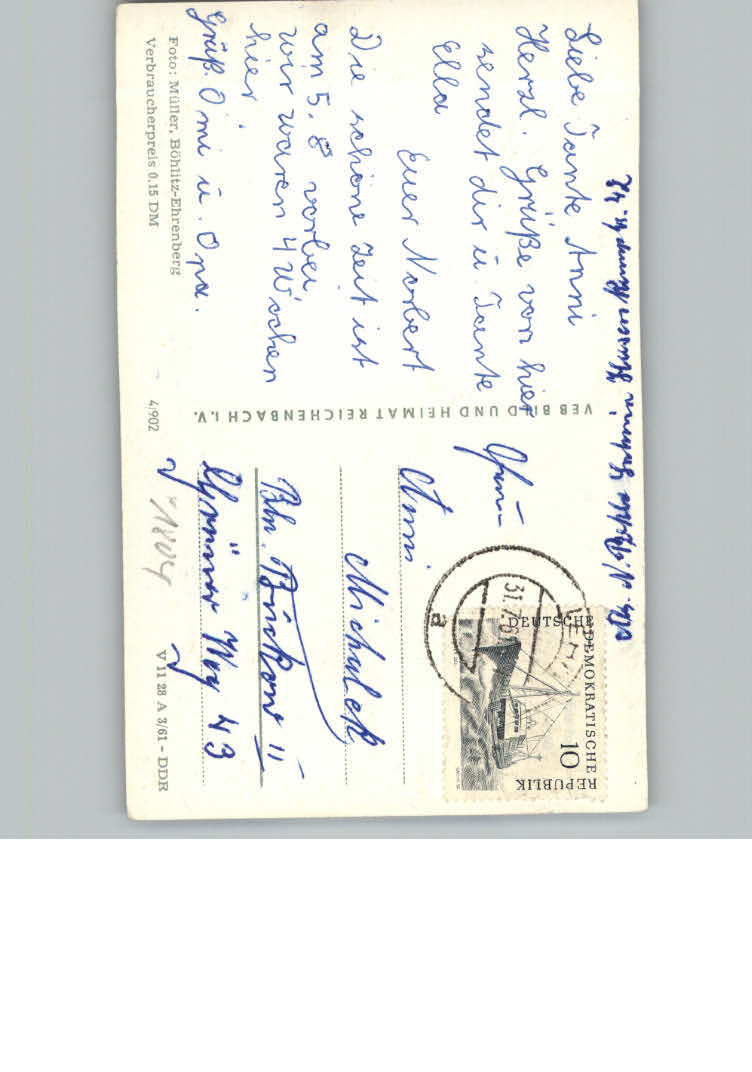 Liebe Tante Anni
Herzl. Grüße von hier
sendet dir u. Tante
Ella
Euer Norbert
Die schöne Zeit ist
am 5. 8 vorbei
wir waren 4 Wochen
hier.
Grüß. Omi u. Opa.
Foto: Müller, Böhlitz-Ehrenberg
Verbraucherpreis 0,15 DM
4/902
VEB BILD UND HEIMAT REICHENBACH I. V.
Anni
Michalek
Bln. Buckow II
Grüner Weg 43
V 11 28 A 3/61 - DDR
31.7.6
a
DEUTSCHE
DEMOKRATISCHE
REPUBLIK
10